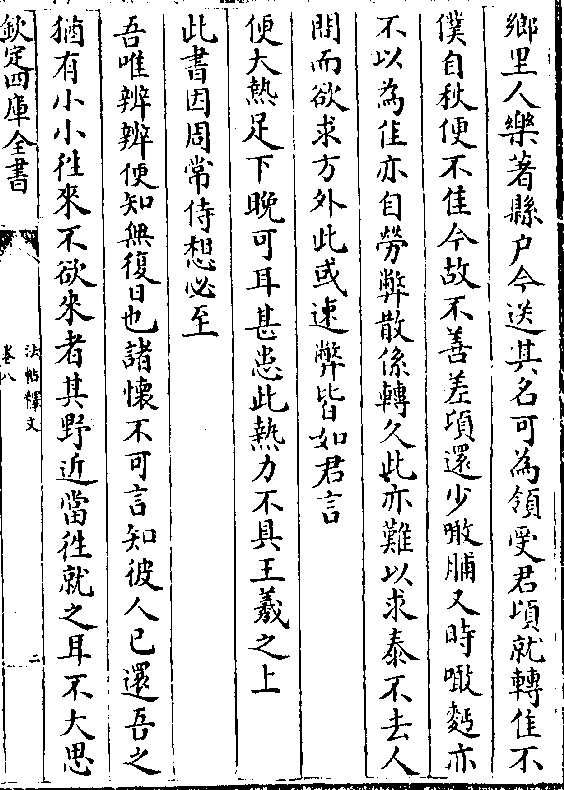 鄉里人樂著縣户今送其名可為領受君頃就轉佳不
僕自秋便不佳今故不善差頃還少噉脯又時噉麫亦
不以為佳亦自勞弊散係轉久此亦難以求泰不去人
間而欲求方外此或速弊皆如君言
便大熱足下晚可耳甚患此熱力不具王羲之上
此書因周常侍想必至
吾唯辨辨便知無復日也諸懷不可言知彼人已還吾之
猶有小小徃來不欲來者其野近當徃就之耳不大思
欽定四庫全書
法帖釋文
卷八
二